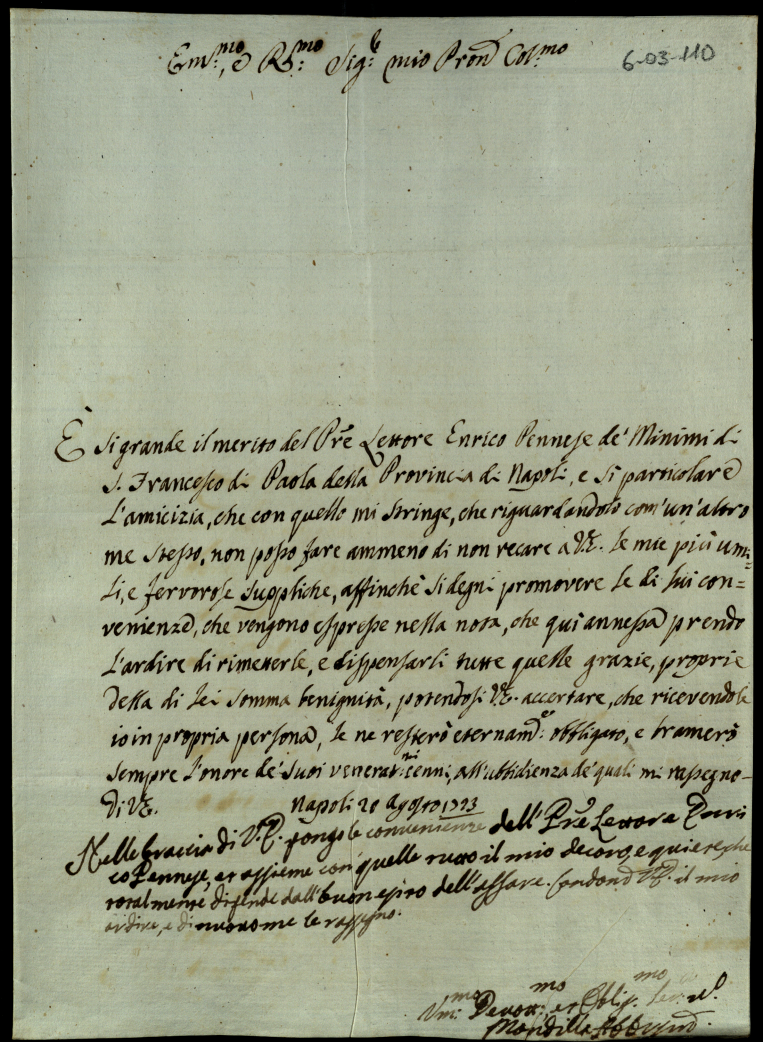 Em:mo, e R:mo Sig:e mio Pron Col:mo
6-03-110
È si grande il merito del Prē Lettore Enrico Pennese de' Minimi di
S. Francesco di Paola della Provincia di Napoli, e si particolare
L'amicizia, che con quello mi stringe, che riguardandolo com'un'altro
me stesso, non posso fare ammeno di non recare a VE. le mie più umi=
li, e fervorose suppliche, affinchè si degni promovere le di lui con=
venienze, che vengono espresse nella nota, che qui annessa prendo
L'ardire di rimetterle, e dispensarli tutte quelle grazie, proprie
della di lei somma benignità, potendosi VE. accertare, che ricevendole
io in propria persona, le ne resterò eternam:e obbligato, e bramerò
sempre l'onore de' suoi venerat:mi cenni, all'ubbidienza de' quali mi rassegno
Di VE.
Napoli 20 Agosto 1773
Nelle braccia di V.E. pongo le convenienze dell' Prē Lettore Enri
co Pennese, et assieme con quelle tutto il mio decoro, e quiete, che
totalmente dipende dall'buon esito dell'affare. Condoni VE. il mio
ardire, e di nuovo me le rassegno.
Um:mo Devot:mo et Obblig:mo